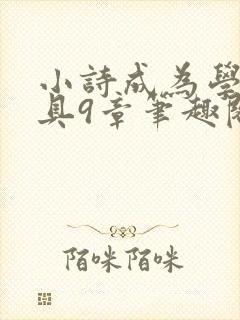 小詩成為學
具9章筆趣閣
陌咪陌咪